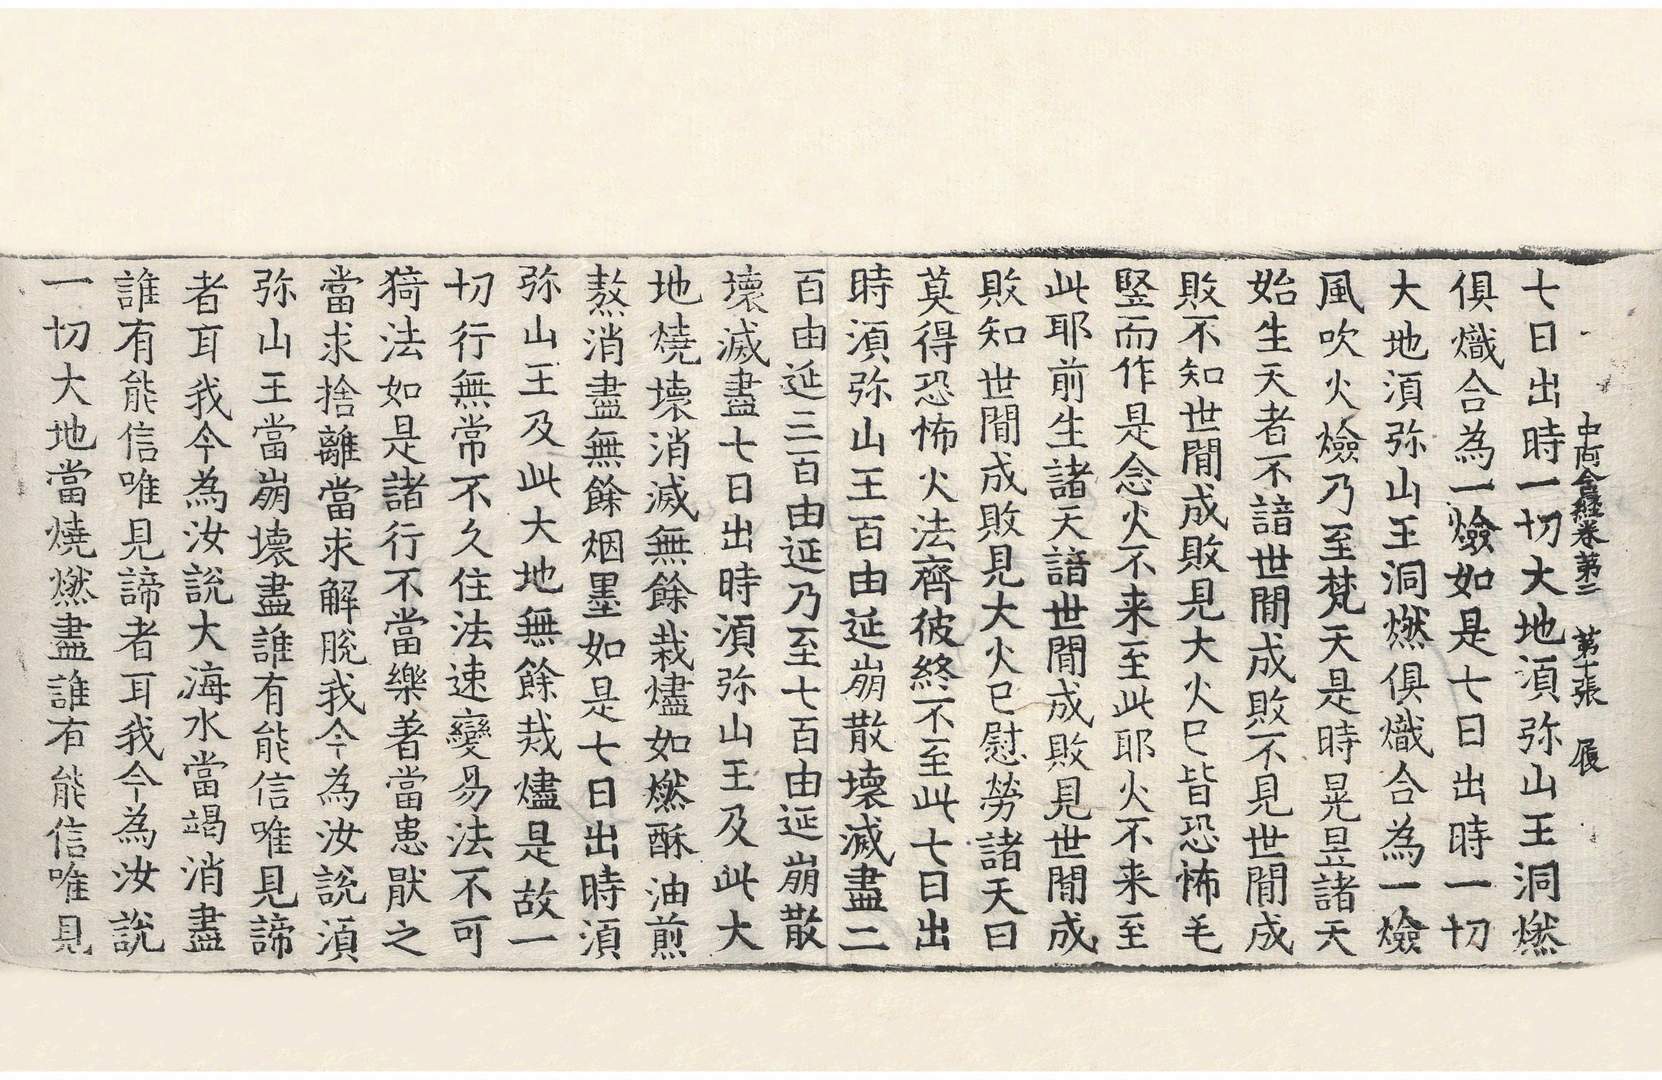 中阿含經卷第二　第十張　履
七日出時一切大地湏弥山王洞燃
俱熾合為一㷿如是七日出時一切
大地湏弥山王洞燃俱熾合為一㷿
風吹火㷿乃至梵天是時晃昱諸天
始生天者不諳世間成敗不見世間成
敗不知世間成敗見大火已皆恐怖毛
竪而作是念火不来至此耶火不来至
此耶前生諸天諳世間成敗見世間成
敗知世間成敗見大火已慰勞諸天曰
莫得恐怖火法齊彼終不至此七日出
時湏弥山王百由延崩散壞滅盡二
百由延三百由延乃至七百由延崩散
壞滅盡七日出時湏弥山王及此大
地燒壞消滅無餘烖燼如燃酥油煎
熬消盡無餘烟墨如是七日出時湏
弥山王及此大地無餘烖燼是故一
切行無常不久住法速變易法不可
猗法如是諸行不當樂著當患猒之
當求捨離當求解脫我今為汝說湏
弥山王當崩壞盡誰有能信唯見諦
者耳我今為汝說大海水當竭消盡
誰有能信唯見諦者耳我今為汝說
一切大地當燒燃盡誰有能信唯見